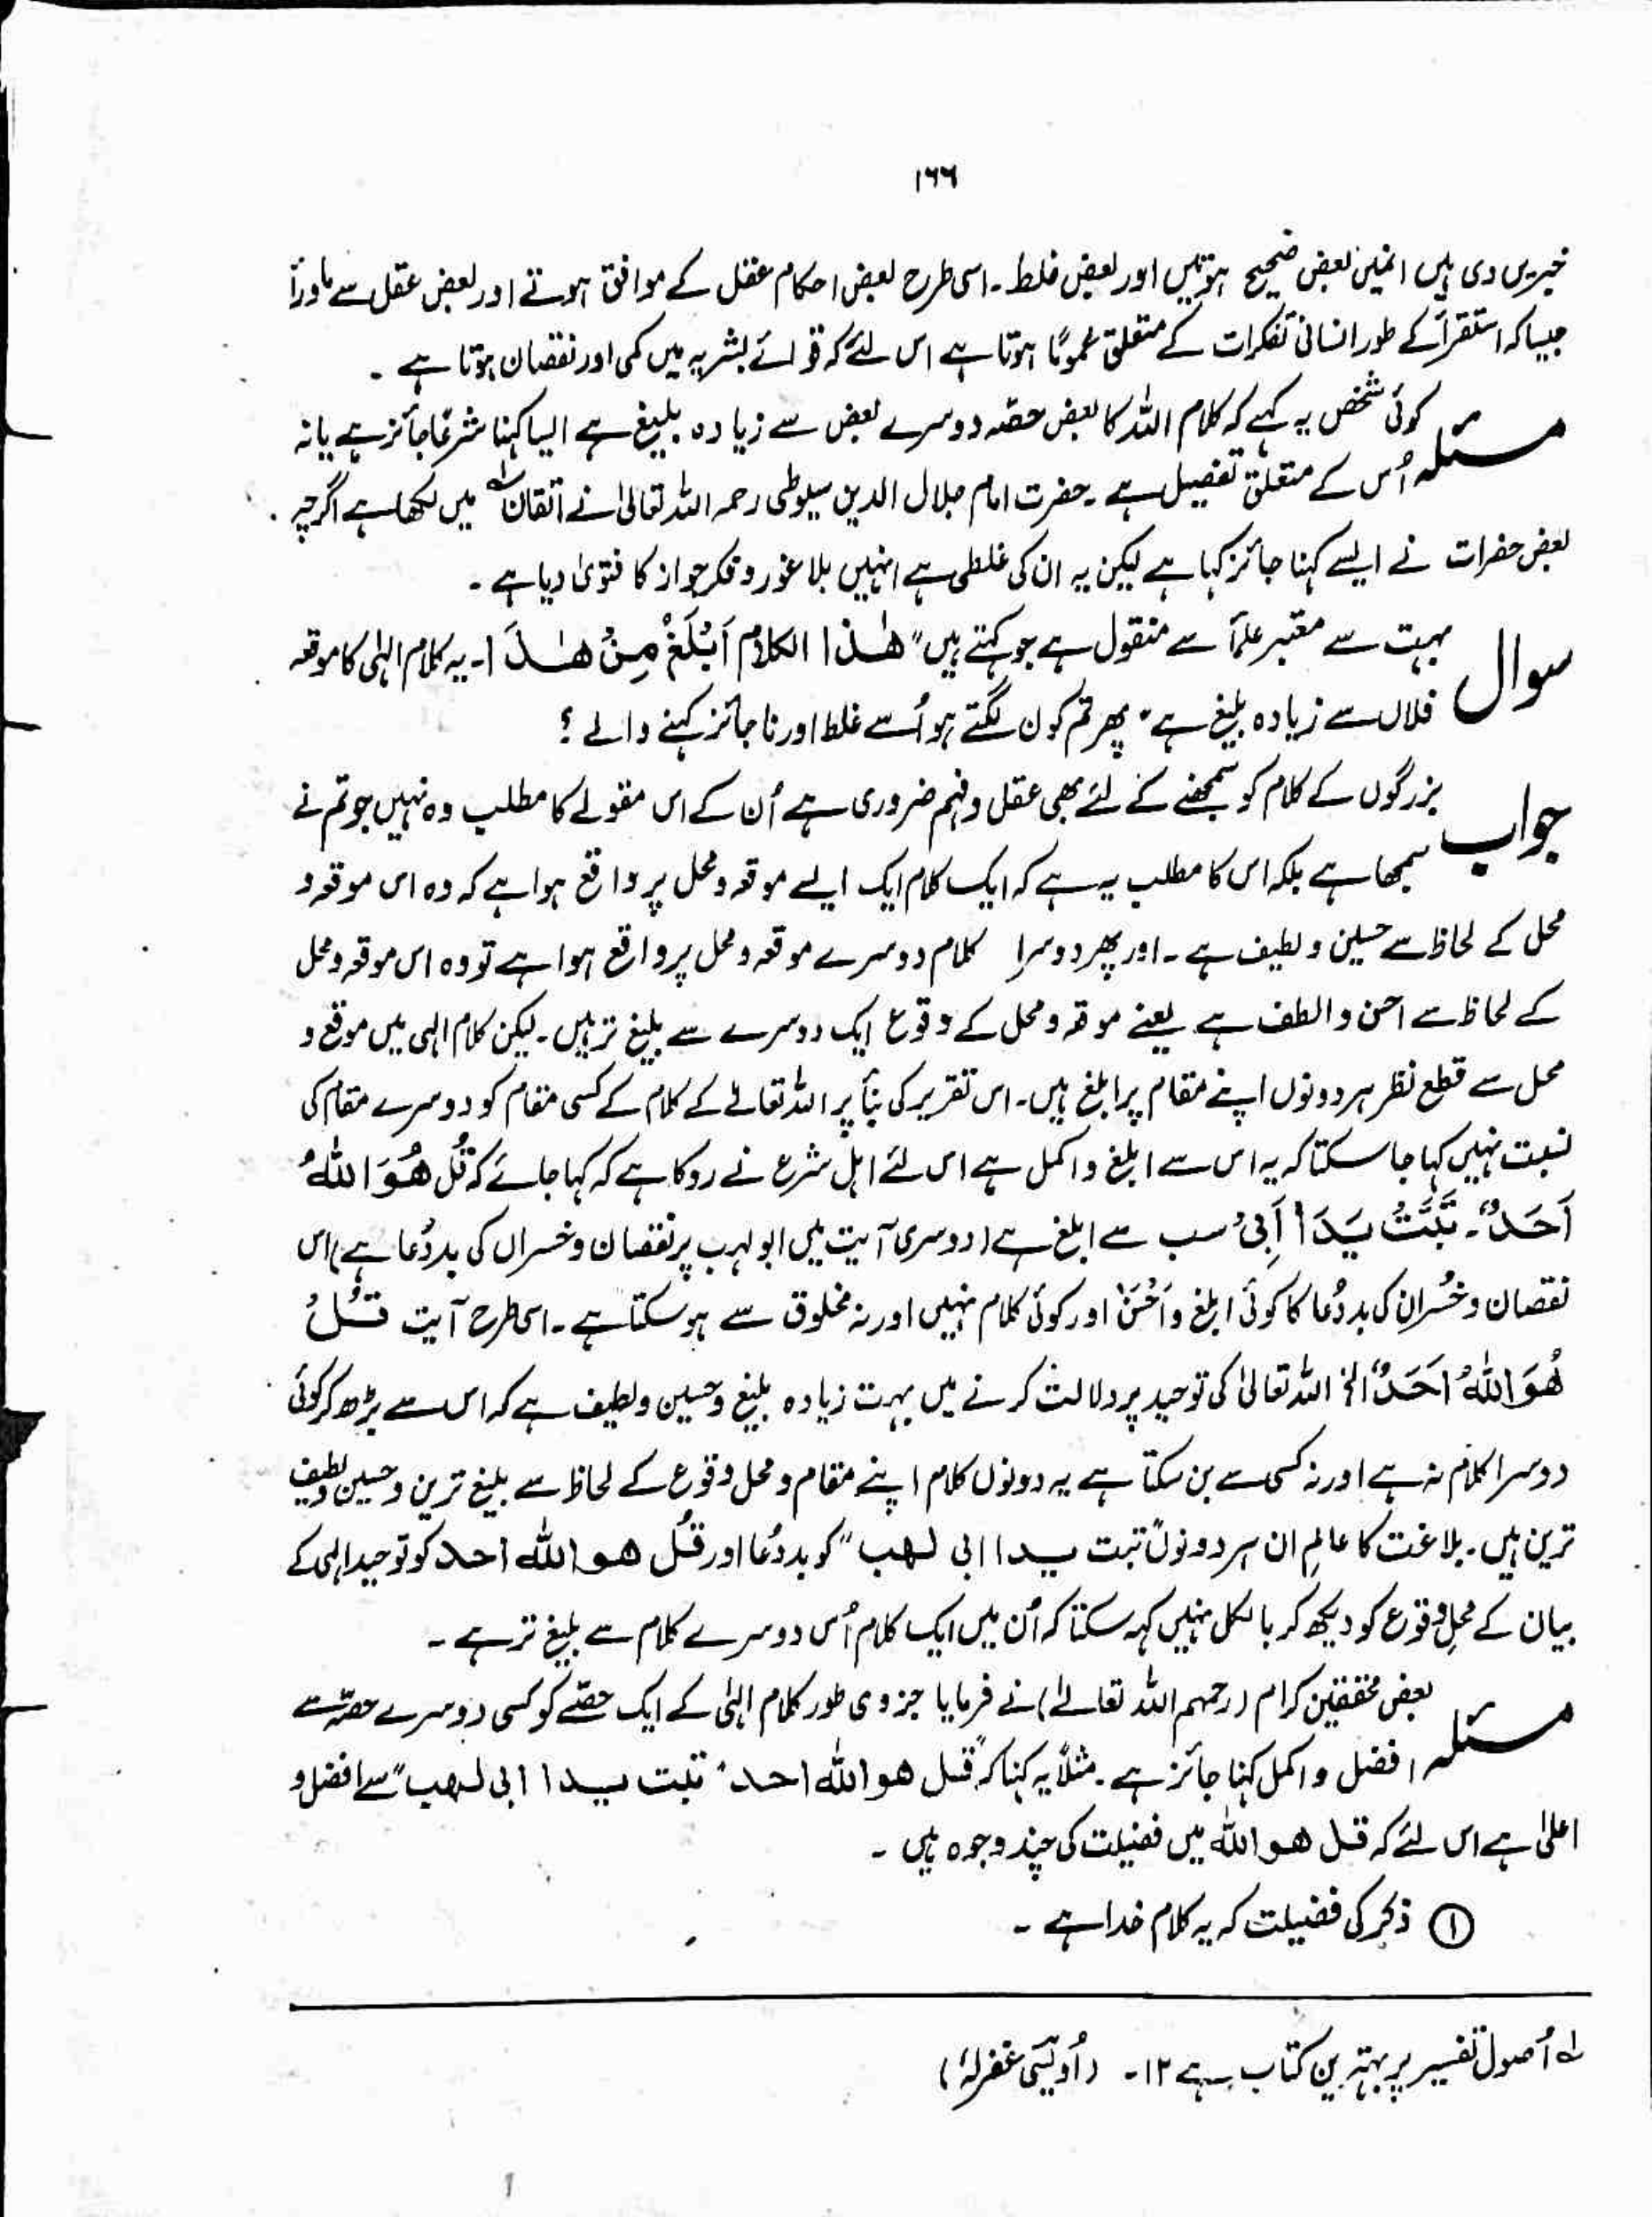 ۱۶۶
خبریں دی ہیں انمیں بعض صحیح ہوتیں اور بعض غلط۔ اسی طرح بعض احکام عقل کے موافق ہوتے اور بعض عقل سے ماوراً
جیسا کہ استقرأ کے طور انسانی تفکرات کے متعلق عموماً ہوتا ہے اس لئے کہ قوائے بشریہ میں کمی اور نقصان ہوتا ہے ۔
مسئلہ کوئی شخص یہ کہے کہ کلام اللہ کا بعض حصہ دوسرے بعض سے زیادہ بلیغ ہے ایسا کہنا شرعًا جائز ہے یا نہ
اُس کے متعلق تفصیل ہے ۔ حضرت امام جلال الدین سیوطی رحمہ اللہ تعالیٰ نے اتقان لہ میں لکھا ہے اگرچہ
بعض حضرات نے ایسے کہنا جائز کہا ہے لیکن یہ ان کی غلطی ہے انہیں بلا غور و فکر جواز کا فتویٰ دیا ہے ۔
سوال بہت سے معتبر علمأ سے منقول ہے جو کہتے ہیں "ھٰذا الکلامُ اَبْلَغُ مِنْ ھٰذَا۔ یہ کلام الہٰی کا موقعہ
فلاں سے زیادہ بلیغ ہے" پھر تم کون لگتے ہو اُسے غلط اور ناجائز کہنے والے ؟
جواب بزرگوں کے کلام کو سمجھنے کے لئے بھی عقل و فہم ضروری ہے اُن کے اس مقولے کا مطلب وہ نہیں جو تم نے
سمجھا ہے بلکہ اس کا مطلب یہ ہے کہ ایک کلام ایک ایسے موقعہ و محل پر واقع ہوا ہے کہ وہ اس موقعہ و
محل کے لحاظ سے حسین و لطیف ہے ۔ اور پھر دوسرا کلام دوسرے موقعہ و محل پر واقع ہوا ہے تو وہ اس موقعہ و محل
کے لحاظ سے احسن و الطف ہے یعنے موقعہ و محل کے وقوع ایک دوسرے سے بلیغ تر ہیں ۔ لیکن کلام الہی میں موقع و
محل سے قطع نظر ہر دونوں اپنے مقام پر ابلغ ہیں۔ اس تقریر کی بنأ پر اللہ تعالےٰ کے کلام کے کسی مقام کو دوسرے مقام کی
نسبت نہیں کہا جا سکتا کہ یہ اس سے ابلغ و اکمل ہے اس لئے اہل شرع نے روکا ہے کہ کہا جائے کہ قُلْ ھُوَ اللّٰہُ
اَحَدٌ"۔ تَبَّتْ یَدَا اَبِیْ سب سے ابلغ ہے (دوسری آیت میں ابو لہب پر نقصان و خسراں کی بد دُعا ہے) اس
نقصان و خُسران کی بد دُعا کا کوئی ابلغ و اَحْسَنْ اور کوئی کلام نہیں اور نہ مخلوق سے ہو سکتا ہے ۔ اسی طرح آیت قُلْ
ھُوَ اللّٰہُ اَحَدٌ" الخ اللہ تعالیٰ کی توحید پر دلالت کرنے میں بہت زیادہ بلیغ و حسین و لطیف ہے کہ اس سے بڑھ کر کوئی
دوسرا کلام نہ ہے اور نہ کسی سے بن سکتا ہے یہ دونوں کلام اپنے مقام و محل وقوع کے لحاظ سے بلیغ ترین و حسین و لطیف
ترین ہیں ۔ بلاغت کا عالم ان ہر دونوں "تبت یدا ابی لھب" کو بد دُعا اور قُل ھو اللّٰہ احد کو توحید الہی کے
بیان کے محلِ وقوع کو دیکھ کر بالکل نہیں کہہ سکتا کہ اُن میں ایک کلام اُس دوسرے کلام سے بلیغ تر ہے ۔
مسئلہ بعض محققین کرام (رحمہم اللہ تعالےٰ) نے فرمایا جزوی طور کلام الہٰی کے ایک حصّے کو کسی دوسرے حصّہ سے
افضل و اکمل کہنا جائز ہے ۔ مثلاً یہ کہنا کہ "قل ھو اللّٰہ احد" تبت یدا ابی لھب" سے افضل و
اعلیٰ ہے اس لئے کہ قل ھو اللّٰہ میں فضیلت کی چند وجوہ ہیں ۔
① ذکر کی فضیلت کہ یہ کلام خدا ہے ۔
لہ اُصول تفسیر پر بہترین کتاب ہے ۱۲۔ (اُویسی غفرلہٗ)